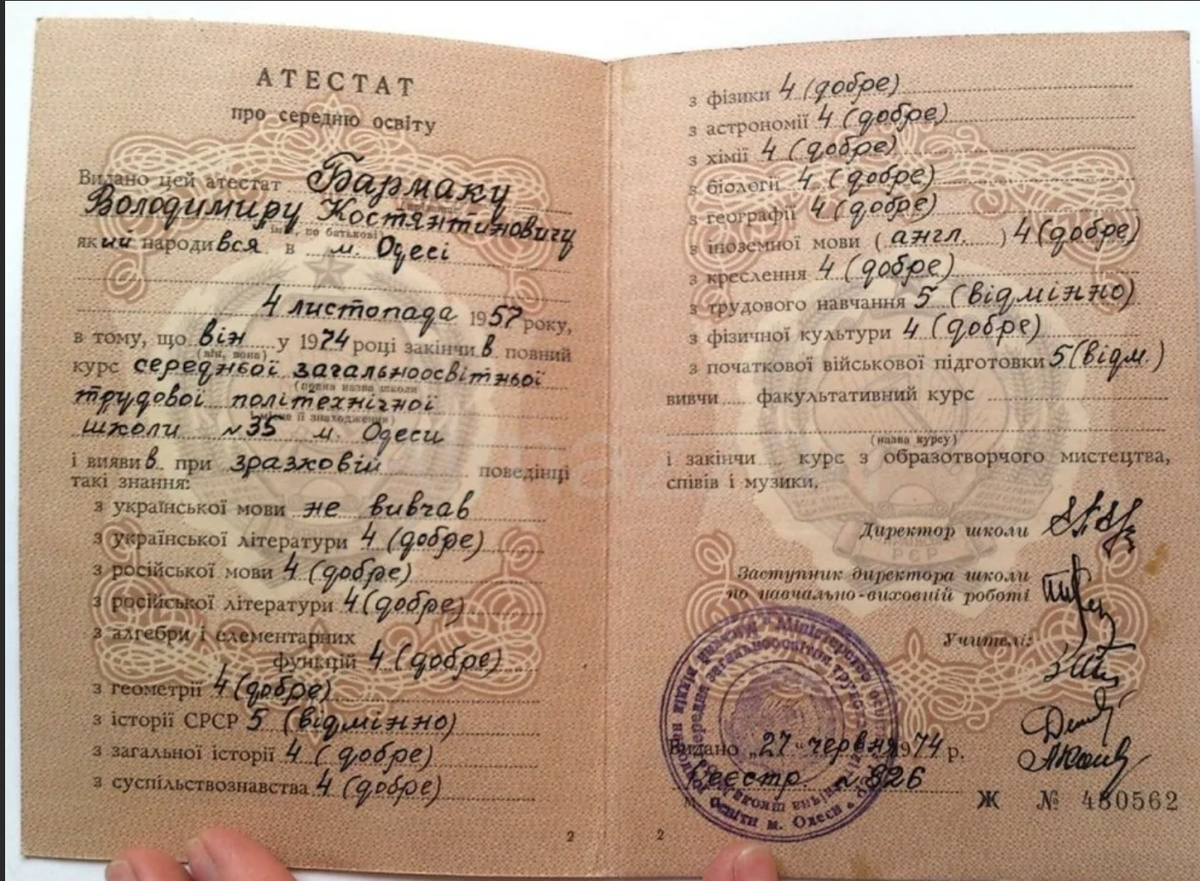 АТЕСТАТ
про середню освіту
Видано цей атестат Бармаку
Володимиру Костянтиновичу
ім'я, по батькові
який народився в м. Одесі
4 листопада 1957 року,
в тому, що він у 1974 році закінчив повний
(він, вона)
курс середньої загальноосвітньої
(повна назва школи
трудової політехнічної
і місце її знаходження)
школи №35 м. Одеси
і виявив при зразковій поведінці
такі знання:
з української мови не вивчав
з української літератури 4 (добре)
з російської мови 4 (добре)
з російської літератури 4 (добре)
з алгебри і елементарних
функцій 4 (добре)
з геометрії 4 (добре)
з історії СРСР 5 (відмінно)
з загальної історії 4 (добре)
з суспільствознавства 4 (добре)
2
з фізики 4 (добре)
з астрономії 4 (добре)
з хімії 4 (добре)
з біології 4 (добре)
з географії 4 (добре)
з іноземної мови (англ.) 4 (добре)
з креслення 4 (добре)
з трудового навчання 5 (відмінно)
з фізичної культури 4 (добре)
з початкової військової підготовки 5 (відм.)
вивчи факультативний курс
(назва курсу)
і закінчи курс з образотворчого мистецтва,
співів і музики.
Директор школи
Заступник директора школи
по навчально-виховній роботі
Учителі:
Видано „27“ червня 1974 р.
Реєстр. №826
Ж № 480562
2